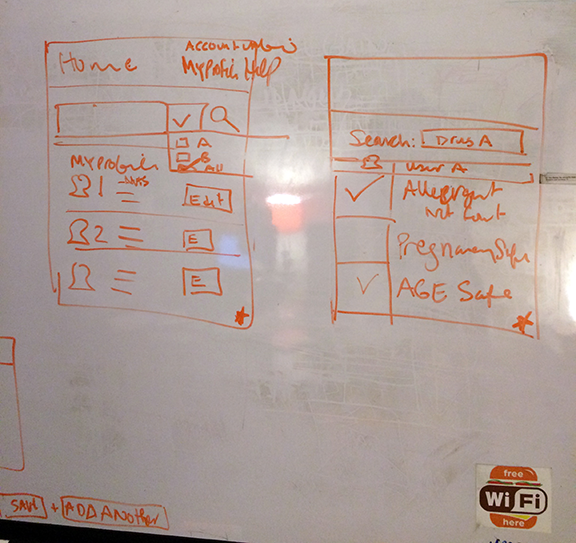 Home
My Profiles Help
A
B
All
My Profiles
1
Edit
2 E
E
Search: Drug A
User A
Allergy
not found
Pregnancy Safe
AGE Safe
SAVE + ADD ANother
free
WiFi
here